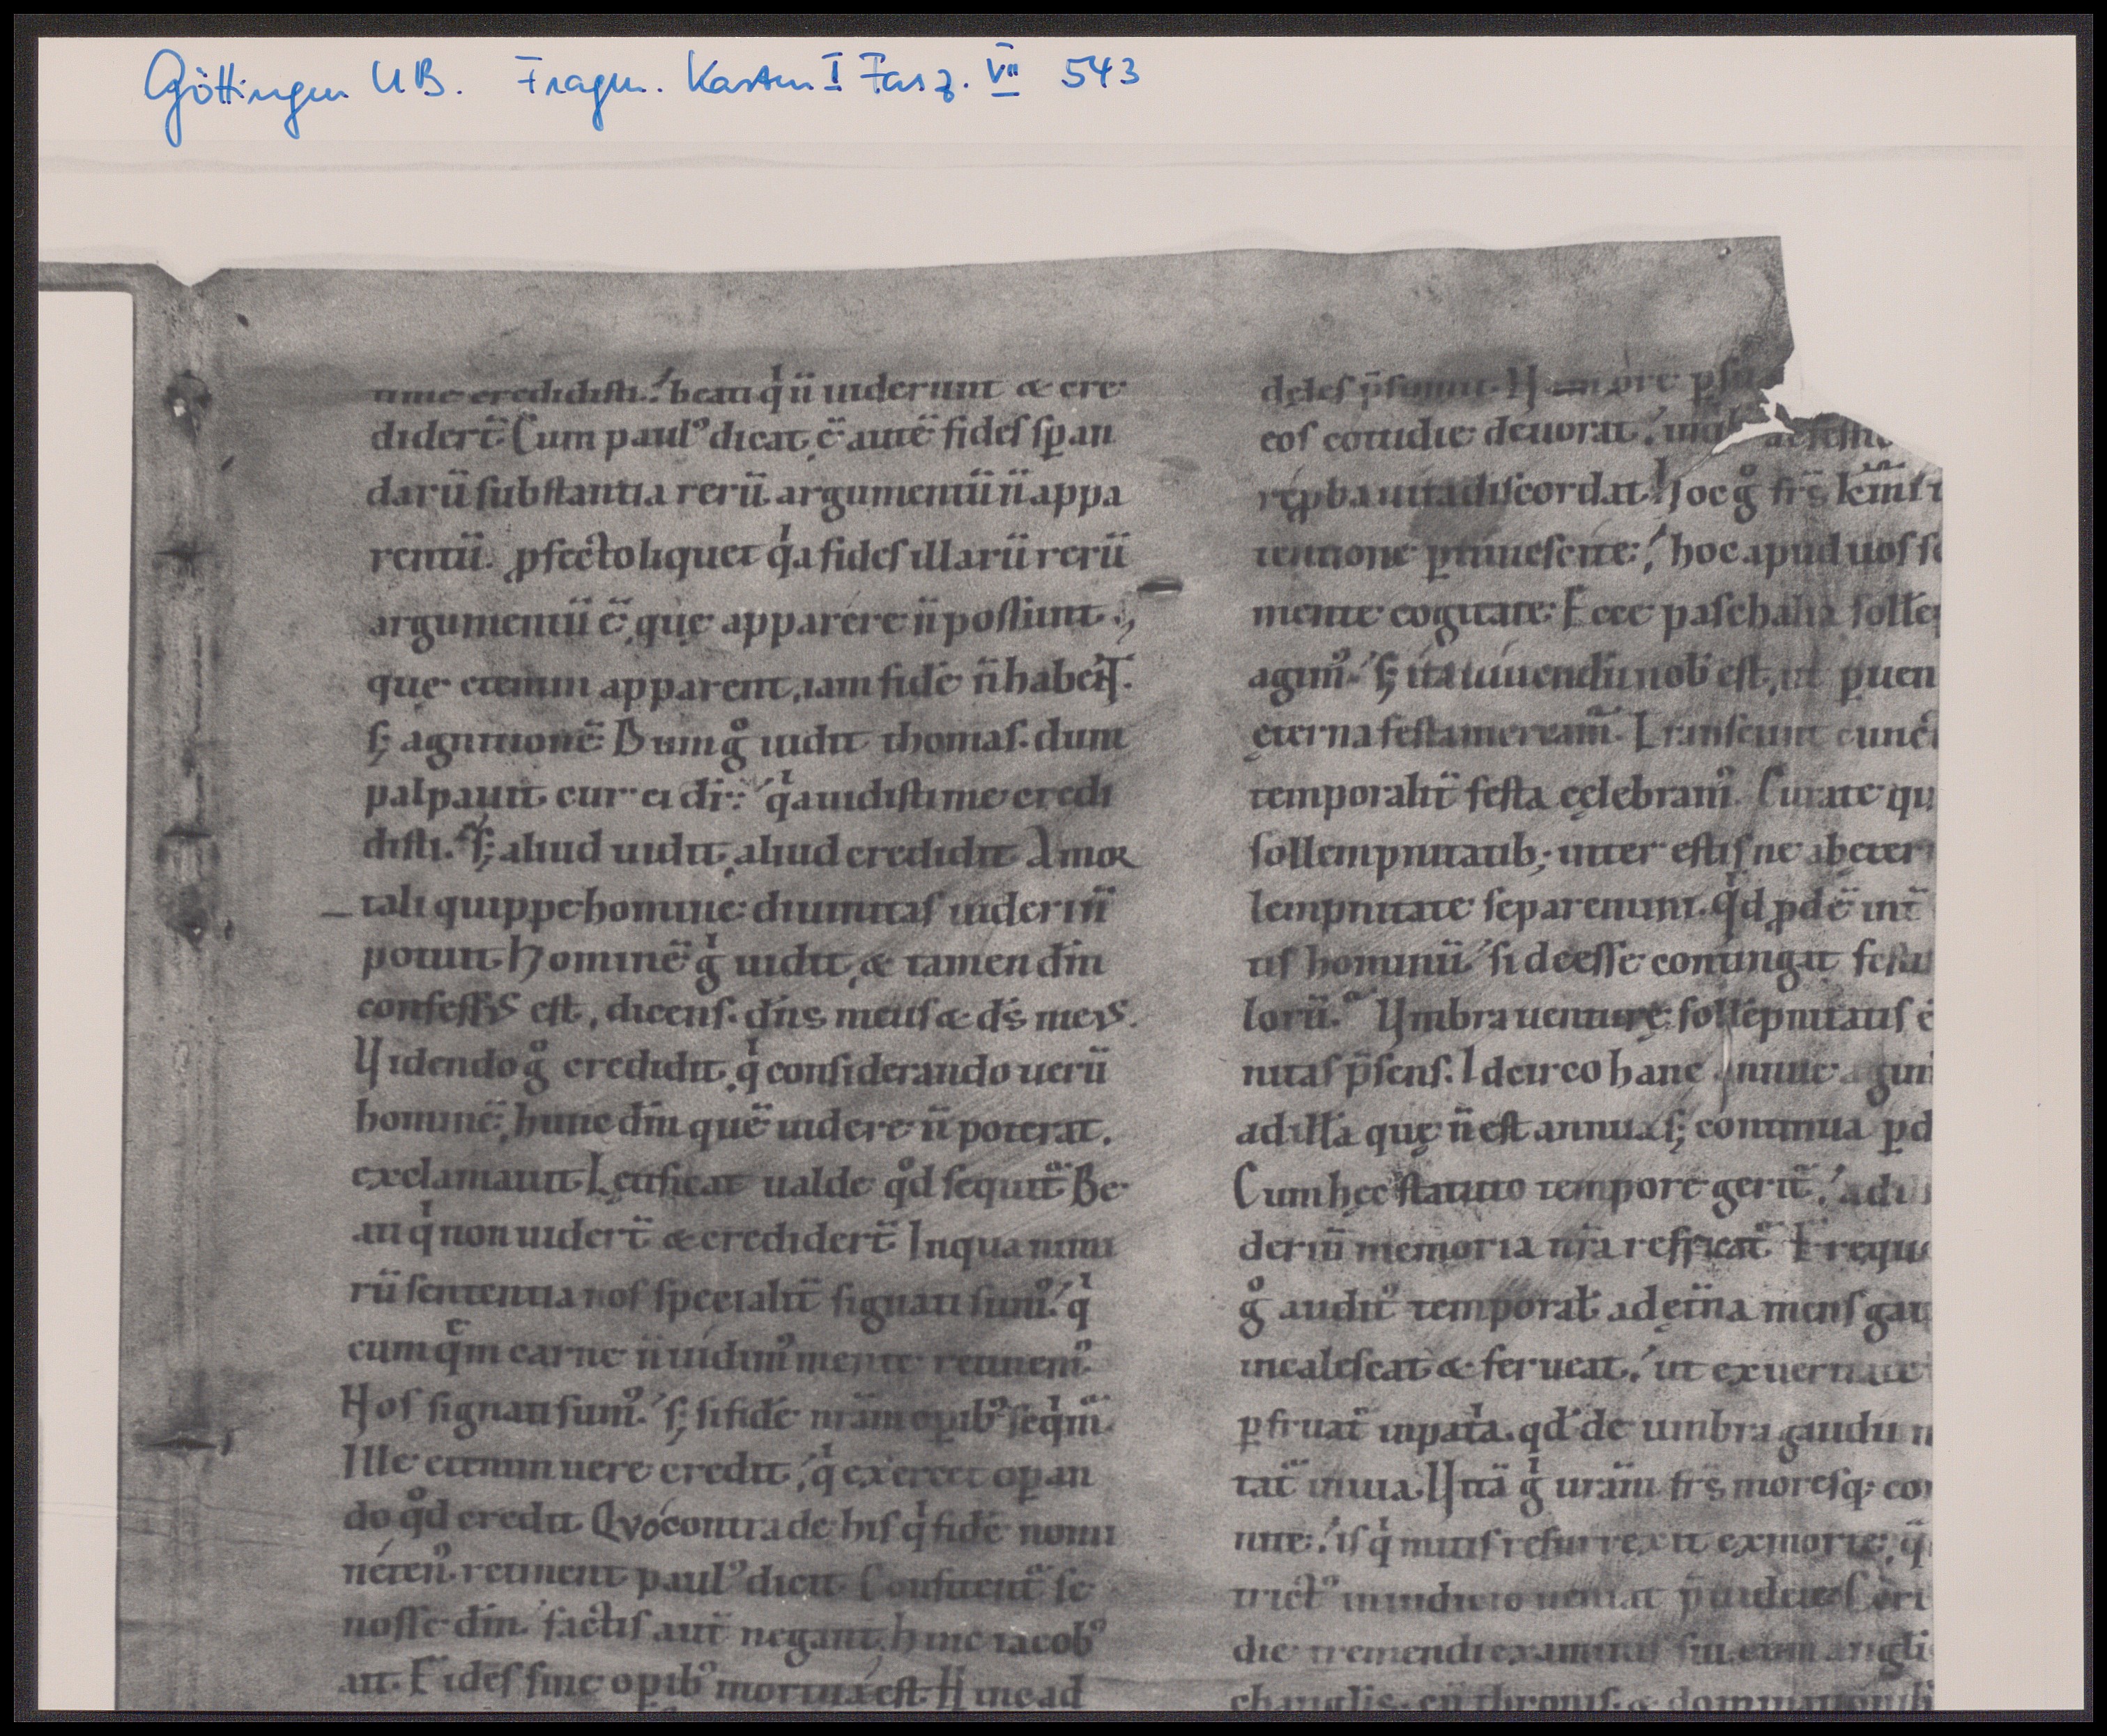 Göttingen UB. Fragm. Kasten I Fasz. VII 543
me credidisti. beati q̍ n̄ uiderunt & cre
didert̄ Cum paulꝰ dicat, ē autē fides sꝑan
darū substantia rerū. argumentū n̄ appa
rentū. ꝓfecto liquet q̍a fides illarū rerū
argumentū ē, quę apparere n̄ possunt.
quę etenim apparent, iam fidē n̄ habent.
s; agnitionē. Dum gͦ uidit thomas. dum
palpauit. cur ei dr̄. q̍a uidisti me credi
disti. s; aliud uidit, aliud credidit A mor
tali quippe homine diuinitas uideri n̄
potuit. Hominē g̍ uidit, & tamen dm̄
confessus est, dicens. dn̄s meus & ds̄ meus.
Videndo gͦ credidit, q̍ considerando uerū
hominē, hunc dm̄ quē uidere n̄ poterat.
exclamauit. Lętificat ualde qͦd sequit̄ Be
ati q̍ non uidert̄ & credidert̄ In qua nimi
rū sententia nos specialit̄ signati sumꝰ. q̍
cum quem carne n̄ uidimꝰ mente retinemꝰ.
Nos signati sumꝰ. s; si fidē nr̄am oꝑibꝰ seq̍m̄.
Ille etenim uere credit, q̍ exercet oꝑan
do qͦd credit Quo contra de his q̍ fidē nomi
netenꝰ retinent paulꝰ dicit Confitent̄ se
nosse dm̄ factis aut̄ negant. hinc iacobꝰ
ait. Fides sine oꝑibꝰ mortua est. Hinc ad
eos cottidie deuorat.
discordat. Hoc gͦ frs̄ km̄i
tentione ꝑtimescite. hoc apud uos
mente cogitate. Ecce paschalia solle
agimꝰ. s; ita uiuendū nob est, ut ꝑuen
ęterna festa mereamꝰ. Transeunt cunc
temporalit̄ festa cęlebramꝰ. Curate qu
sollempnitatib; inter estis ne ab eter
lempnitate separemini. Q̍d ꝓdē int̄
tis hominū si deesse contingat festi
lorū. Vmbra uenturę sollēpnitatis ē
nitas p̄sens. Idcirco hanc annue agim
ad illā quę n̄ est annua s; continua ꝑd
Cum hęc statuto tempore gerit̄. ad il
deriū memoria nr̄a reficiat̄ Freque
gͦ auditꝰ temporal ad ęt̄na mens gau
incalescat & ferueat. ut ex ueritate
ꝑfruat̄ in pat̍a. qd de umbra gaudii
tat̄ in uia. Vitā g̍ ur̄am frs̄ moresq; co
nite. is q̍ mitis resurrexit ex morte, q̄
trictꝰ in iudicio ueniat p̄uidete. Certe
die tremendi examinis sui cum angli
changlis. cū thronis. & dominationib